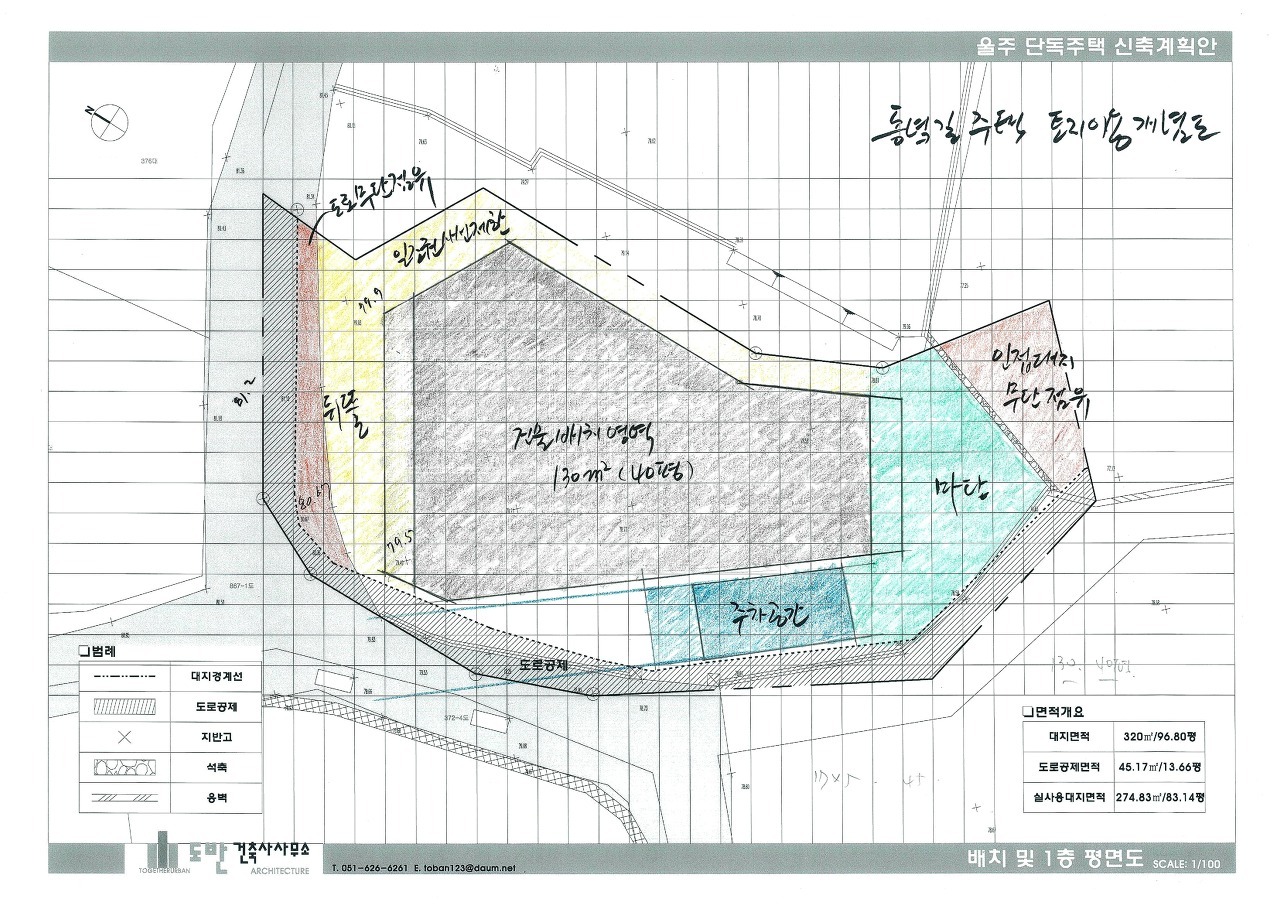 울주 단독주택 신축계획안
주택 토지이용개념도
N
376대
도로무단점유
일조권 사선제한
79.9
81.2
뒤뜰
인접대지
무단점유
건물배치영역
130m² (40평)
마당
80.67
79.5
주차공간
867-1도
도로공제
372-4도
130. 40평.
범례
대지경계선
도로공제
지반고
석축
옹벽
면적개요
대지면적 320㎡/96.80평
도로공제면적 45.17㎡/13.66평
실사용대지면적 274.83㎡/83.14평
도반 건축사사무소
TOGETHERURBAN ARCHITECTURE
T. 051-626-6261 E. toban123@daum.net
배치 및 1층 평면도 SCALE: 1/100